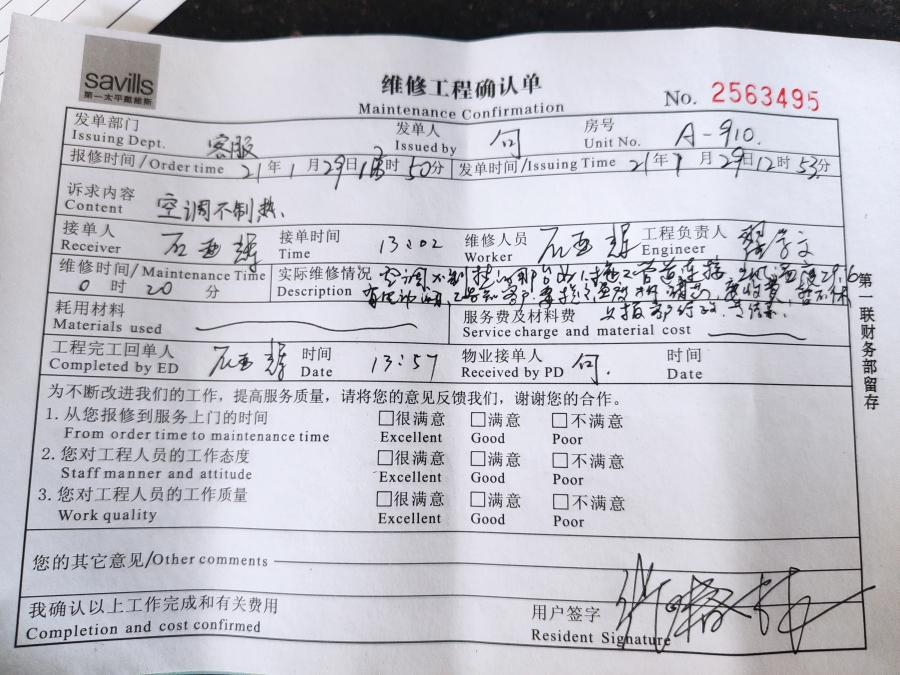 savills
第一太平戴維斯
维修工程确认单
Maintenance Confirmation
No. 2563495
发单部门 客服 发单人 句 房号 A-910.
Issuing Dept. Issued by Unit No.
报修时间/Order time 21年1月29日 时50分 发单时间/Issuing Time 21年1月29日12时53分
诉求内容
Content 空调不制热、
接单人 接单时间 13:02 维修人员 工程负责人
Receiver Time Worker Engineer
维修时间/Maintenance Time 实际维修情况 空调不制热
0时20分 Description
耗用材料 服务费及材料费
Materials used Service charge and material cost
工程完工回单人 时间 13:57 物业接单人 句. 时间
Completed by ED Date Received by PD Date
为不断改进我们的工作，提高服务质量，请将您的意见反馈我们，谢谢您的合作。
1. 从您报修到服务上门的时间 □很满意 □满意 □不满意
From order time to maintenance time Excellent Good Poor
2. 您对工程人员的工作态度 □很满意 □满意 □不满意
Staff manner and attitude Excellent Good Poor
3. 您对工程人员的工作质量 □很满意 □满意 □不满意
Work quality Excellent Good Poor
您的其它意见/Other comments
我确认以上工作完成和有关费用 用户签字
Completion and cost confirmed Resident Signature
第一联财务部留存